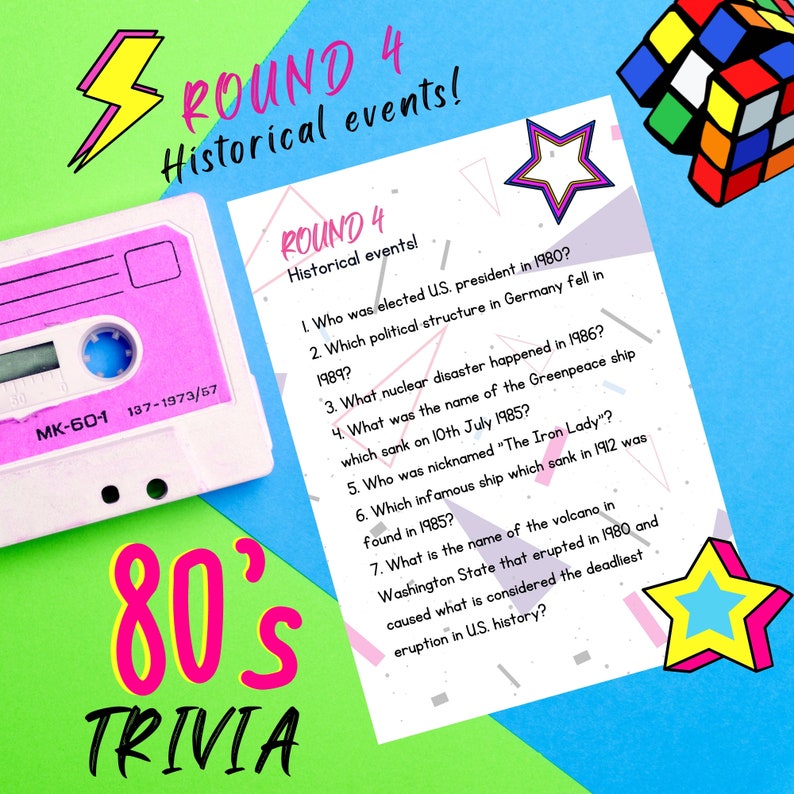 ROUND 4
Historical events!
ROUND 4
Historical events!
1. Who was elected U.S. president in 1980?
2. Which political structure in Germany fell in
1989?
3. What nuclear disaster happened in 1986?
4. What was the name of the Greenpeace ship
which sank on 10th July 1985?
5. Who was nicknamed "The Iron Lady"?
6. Which infamous ship which sank in 1912 was
found in 1985?
7. What is the name of the volcano in
Washington State that erupted in 1980 and
caused what is considered the deadliest
eruption in U.S. history?
50 0
MK-60-1 137-1973/57
80's
TRIVIA